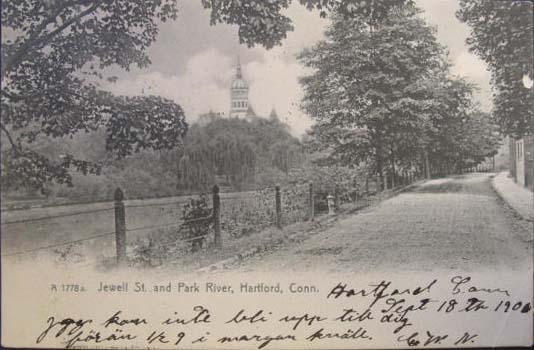 A 1778a. Jewell St. and Park River, Hartford, Conn.
Hartford Conn
Sept 18th 190
jag kan inte bli upp till dig
förän 1/2 9 i morgan kväll.
E. W. N.